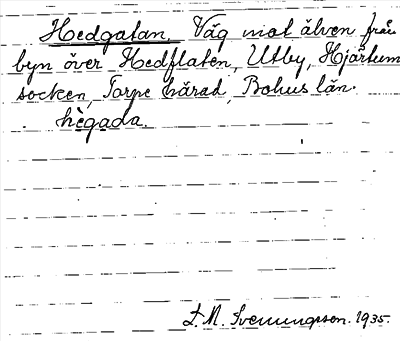 Hedgatan, Väg mot älven från
byn över Hedflaten, Utby, Hjärtum
socken, Torpe härad, Bohus län.
hègada.
S. M. Svenungsson. 1935.